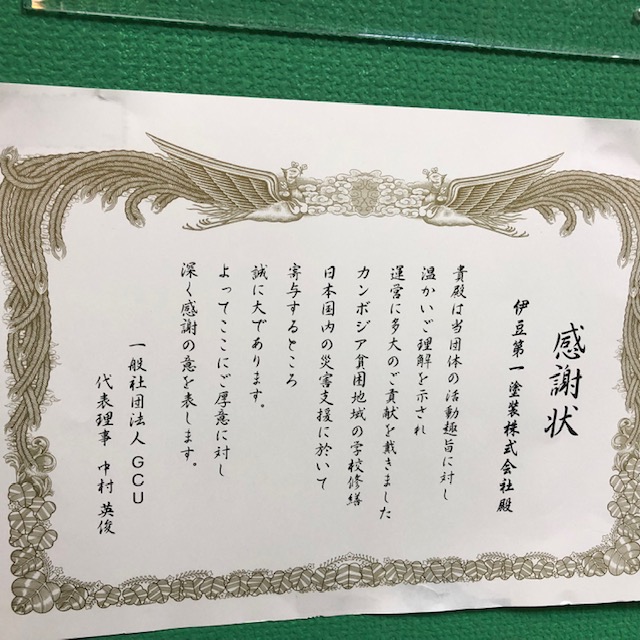 感謝状
伊豆第一塗装株式会社殿
貴殿は当団体の活動趣旨に対し
温かいご理解を示され
運営に多大のご貢献を戴きました
カンボジア貧困地域の学校修繕
日本国内の災害支援に於いて
寄与するところ
誠に大であります。
よってここにご厚意に対し
深く感謝の意を表します。
一般社団法人GCU
代表理事 中村英俊